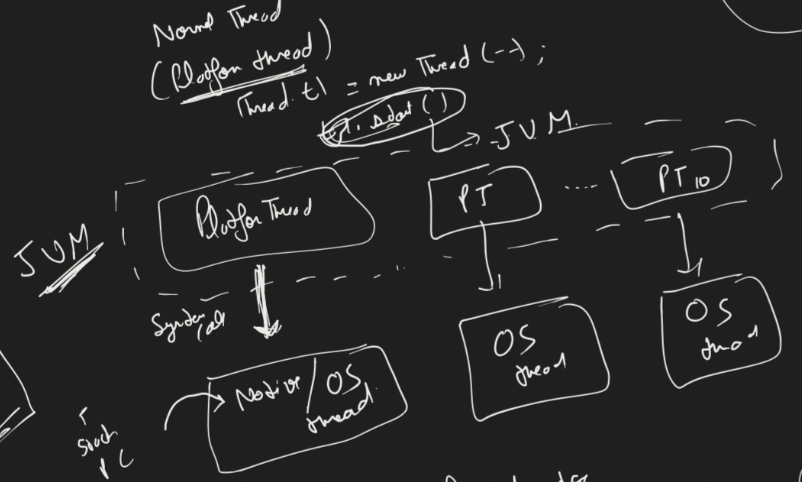 Normal Thread
(Platform thread)
Thread t1 = new Thread (--);
t1. start ()
JVM
JVM
Platform Thread
PT
....
PT10
System call
Native / OS thread
OS thread
OS thread
stack
PC